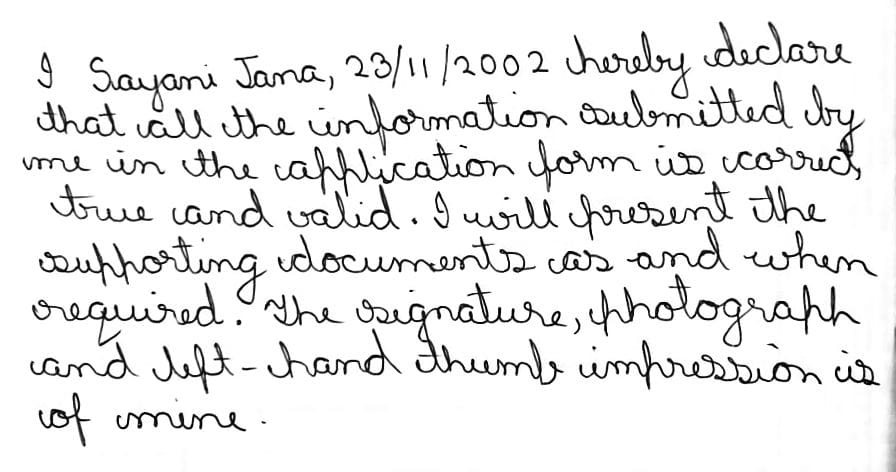 I Sayani Jana, 23/11/2002 hereby declare
that all the information submitted by
me in the application form is correct,
true and valid. I will present the
supporting documents as and when
required. The signature, photograph
and left-hand thumb impression is
of mine.